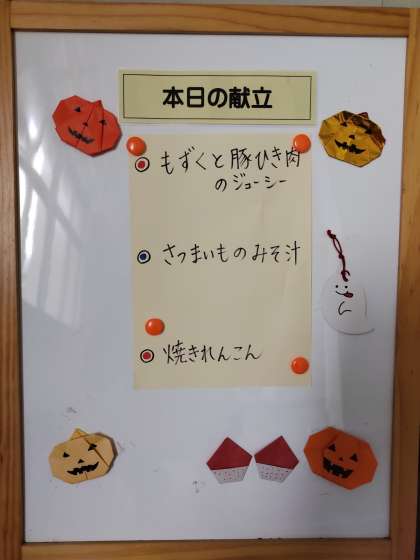 本日の献立
もずくと豚ひき肉
のジューシー
さつまいものみそ汁
焼きれんこん